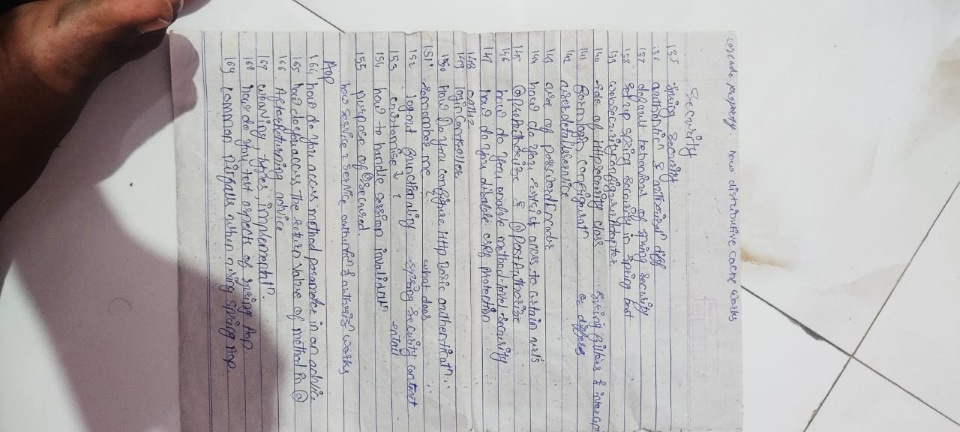 cascade property. how distributive cache works
Security
135 Spring Security
136 authenticⁿ & authorisatⁿ diff
137 default behaviour of spring security
138 set up spring security in spring boot
139 WebSecurityConfigurerAdapter
140 role of HttpSecurity class Spring filters & intercep
141 Form login configuratⁿ or differs
142 userdetailsservice
143 use of passwordEncoder
144 how do you restrict access to certain urls
145 @preAuthorize & @PostAuthorize
146 how do you enable method-level security
147 how do you disable csrf protection
148 OATH2
149 loginController
150 How Do you configure Http Basic authenticatⁿ..
151 remember me ? what does
152 logout functionality spring security context
153 customise ↓ ? entail
154 how to handle session invalidatⁿ
155 purpose of @secured.
how service 2 service authenticⁿ & authorisⁿ works
Aop
164 how do you access method parameter in an advice
165 how do you access The return value of method in @
166 AfterReturning advice
167 weaving, types, implementⁿ.
168 how do you test aspects of spring Aop.
169 common pitfalls when using spring Aop.